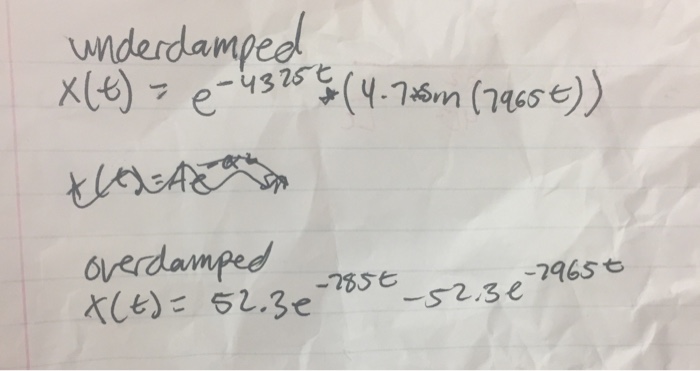 underdamped
x(t) = e^-4325t *(4.7*sin(7965t))
x(t)=Ae
overdamped
x(t) = 52.3e^-785t -52.3e^-7965t